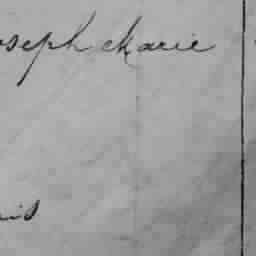 oseph Marie
is